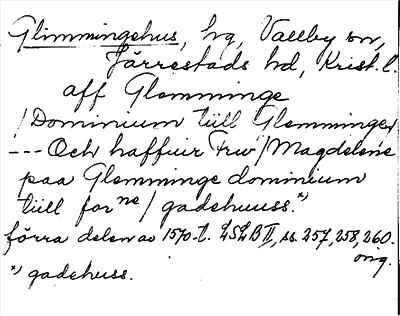 Glimmingehus, hg, Vallby sn,
Järrestads hd, Krist. l.
aff Glemminge
/Dominium tiill Glemminge/
--- Och haffuir Frw/Magdelene
paa Glemminge dominium
tiill forne/ gadehuuss.*)
förra delen av 1570-t. LSLB II, ss. 257, 258, 260.
orig.
*) gadehuss.